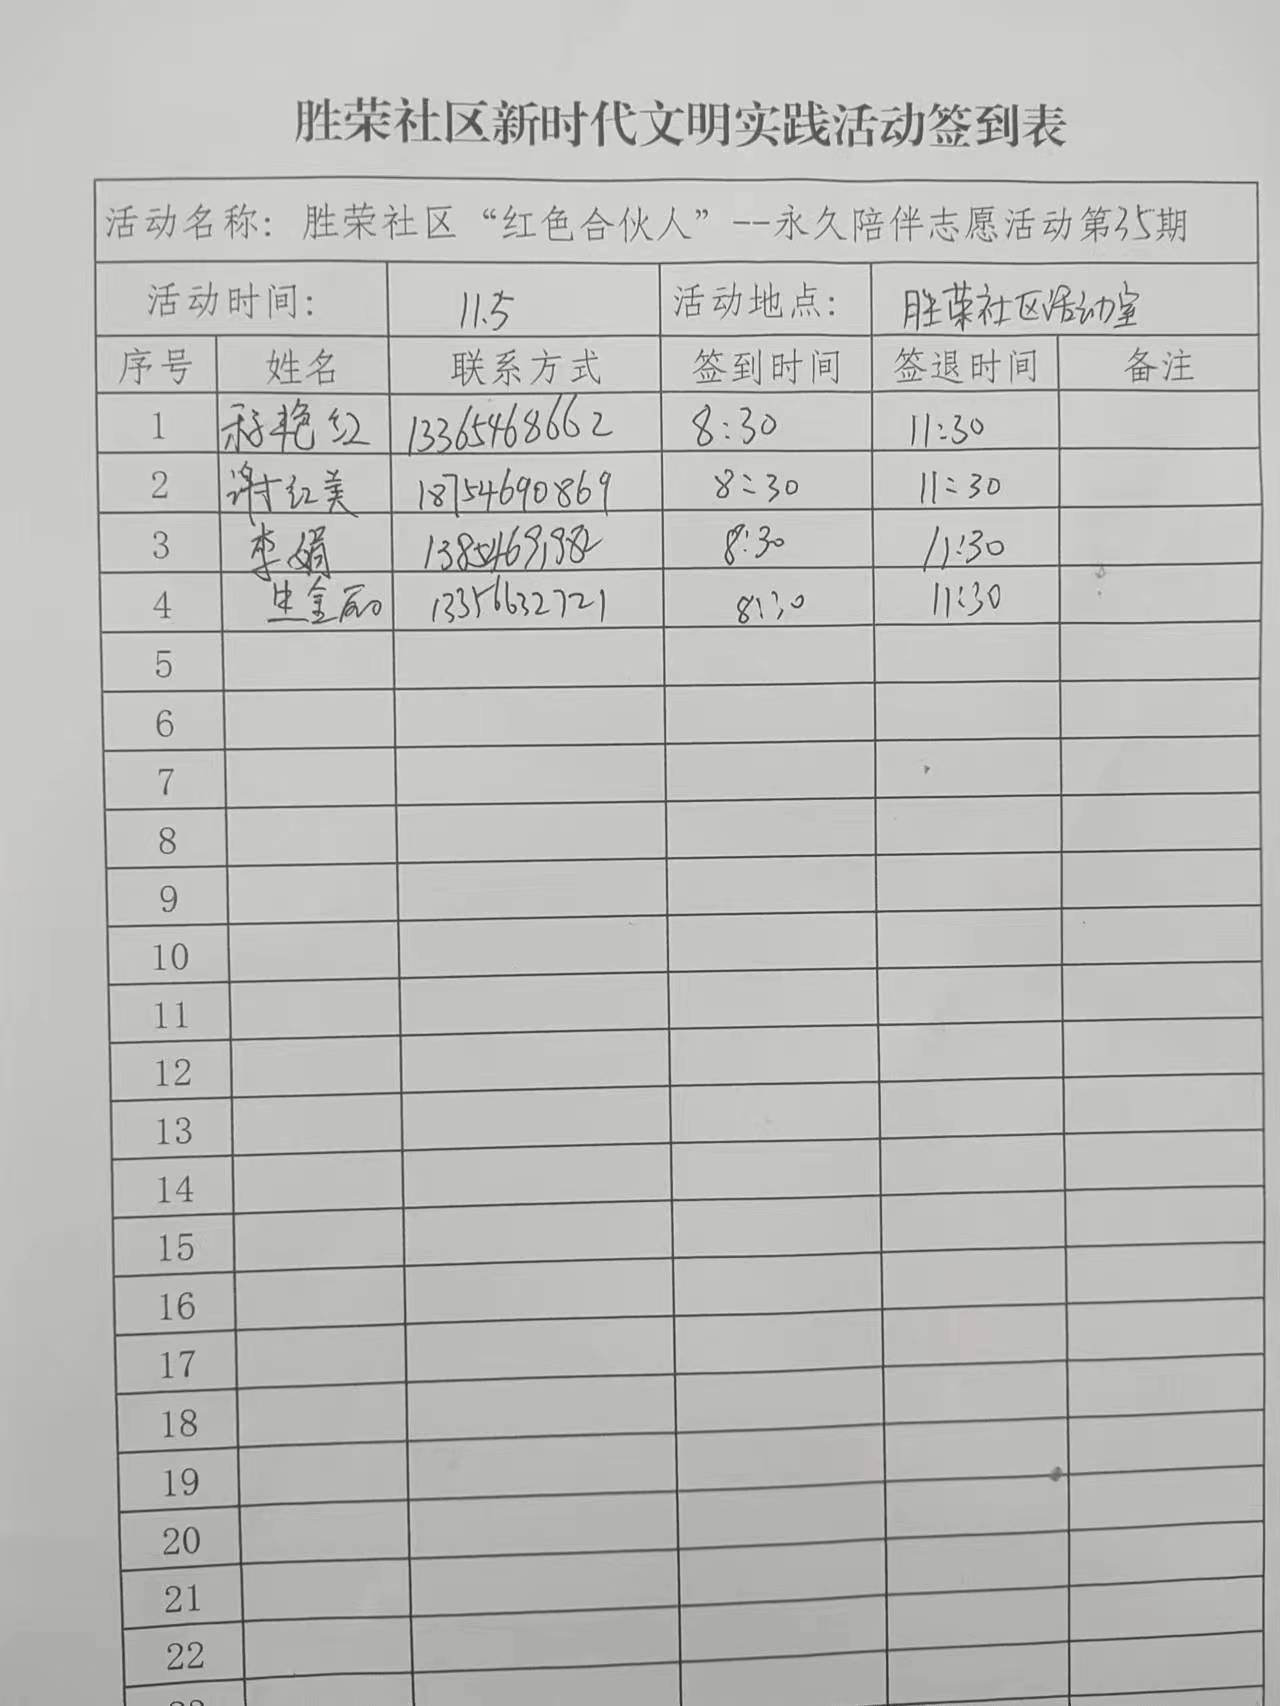 胜荣社区新时代文明实践活动签到表
活动名称：胜荣社区“红色合伙人”--永久陪伴志愿活动第35期
活动时间： 11.5 活动地点： 胜荣社区活动室
序号 姓名 联系方式 签到时间 签退时间 备注
1 艳红 13365468662 8:30 11:30
2 谢红美 18754690869 8:30 11:30
3 李娟 8:30 11:30
4 13356632721 8:30 11:30
5
6
7
8
9
10
11
12
13
14
15
16
17
18
19
20
21
22